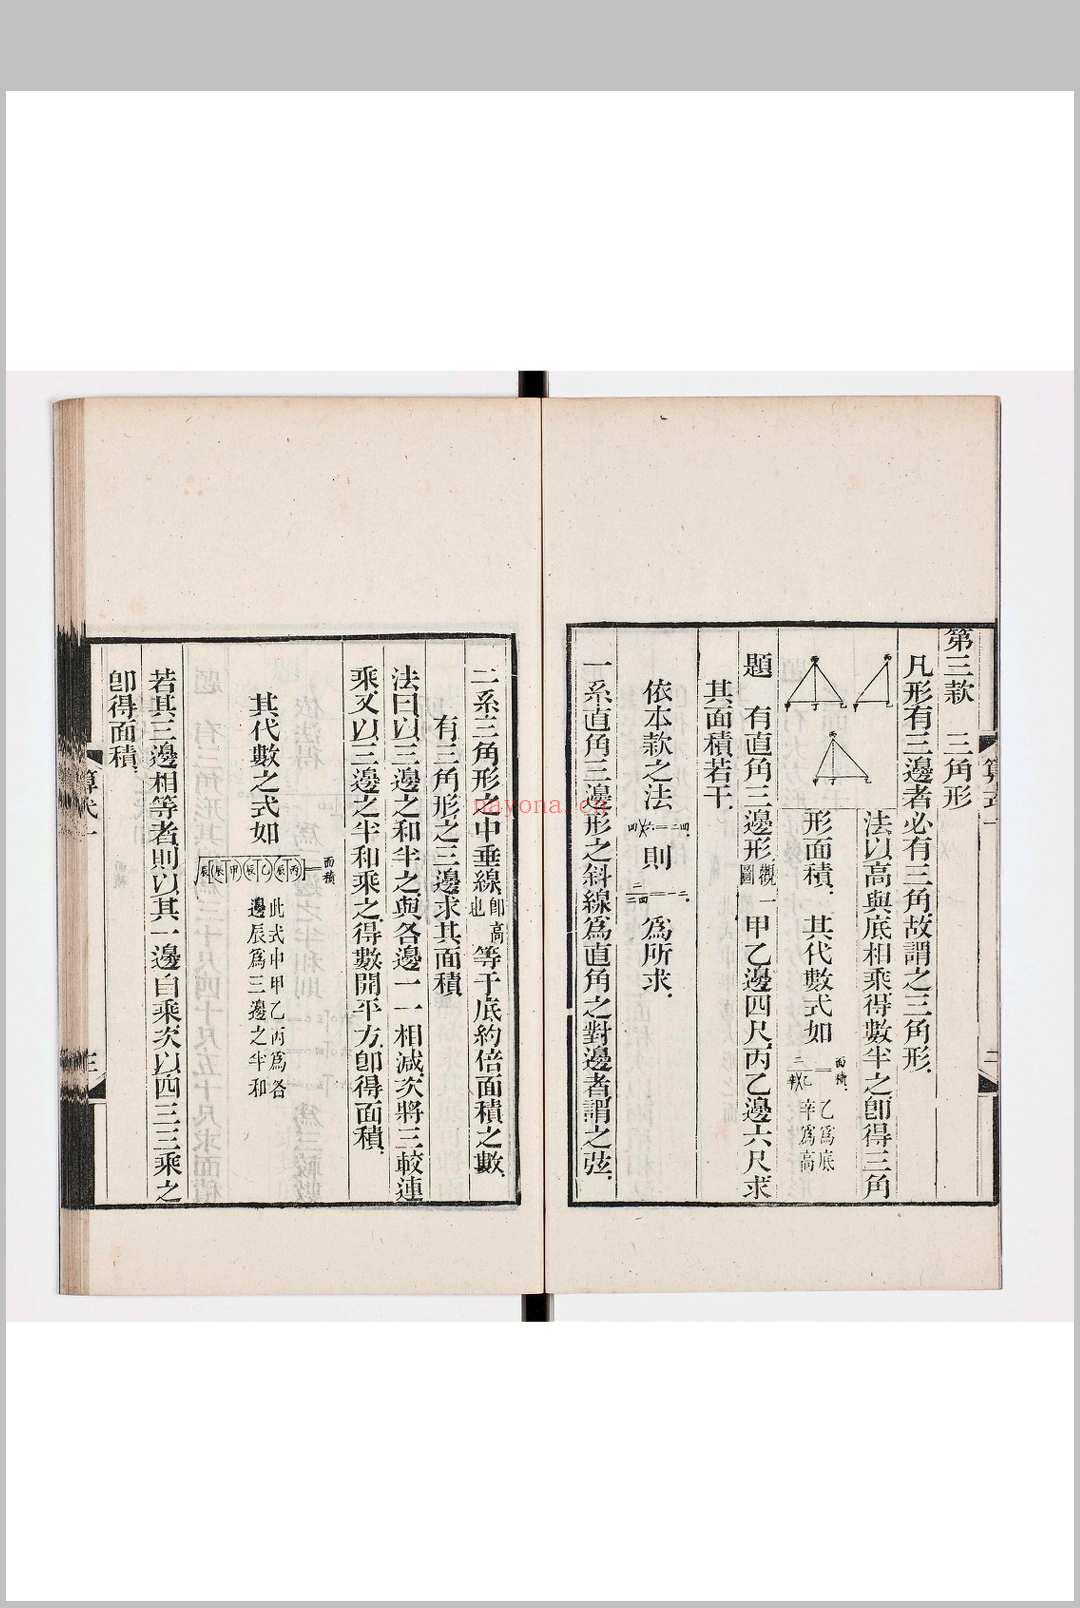 第三款　三角形
凡形有三邊者必有三角故謂之三角形
法以高與底相乘得數半之卽得三角
形面積　其代數式如
面積
乙爲底
辛爲高
題　有直角三邊形觀圖一甲乙邊四尺丙乙邊六尺求
其面積若干
依本款之法
則
爲所求
一系直角三邊形之斜線爲直角之對邊者謂之弦
二系三角形之中垂線卽高也等于底約倍面積之數
有三角形之三邊求其面積
法曰以三邊之和半之與各邊一一相減次將三較連
乘又以三邊之半和乘之得數開平方卽得面積
其代數之式如
面積
此式中甲乙丙爲各
邊辰爲三邊之半和
若其三邊相等者則以其一邊自乘次以四三三乘之
卽得面積
nayona.cn